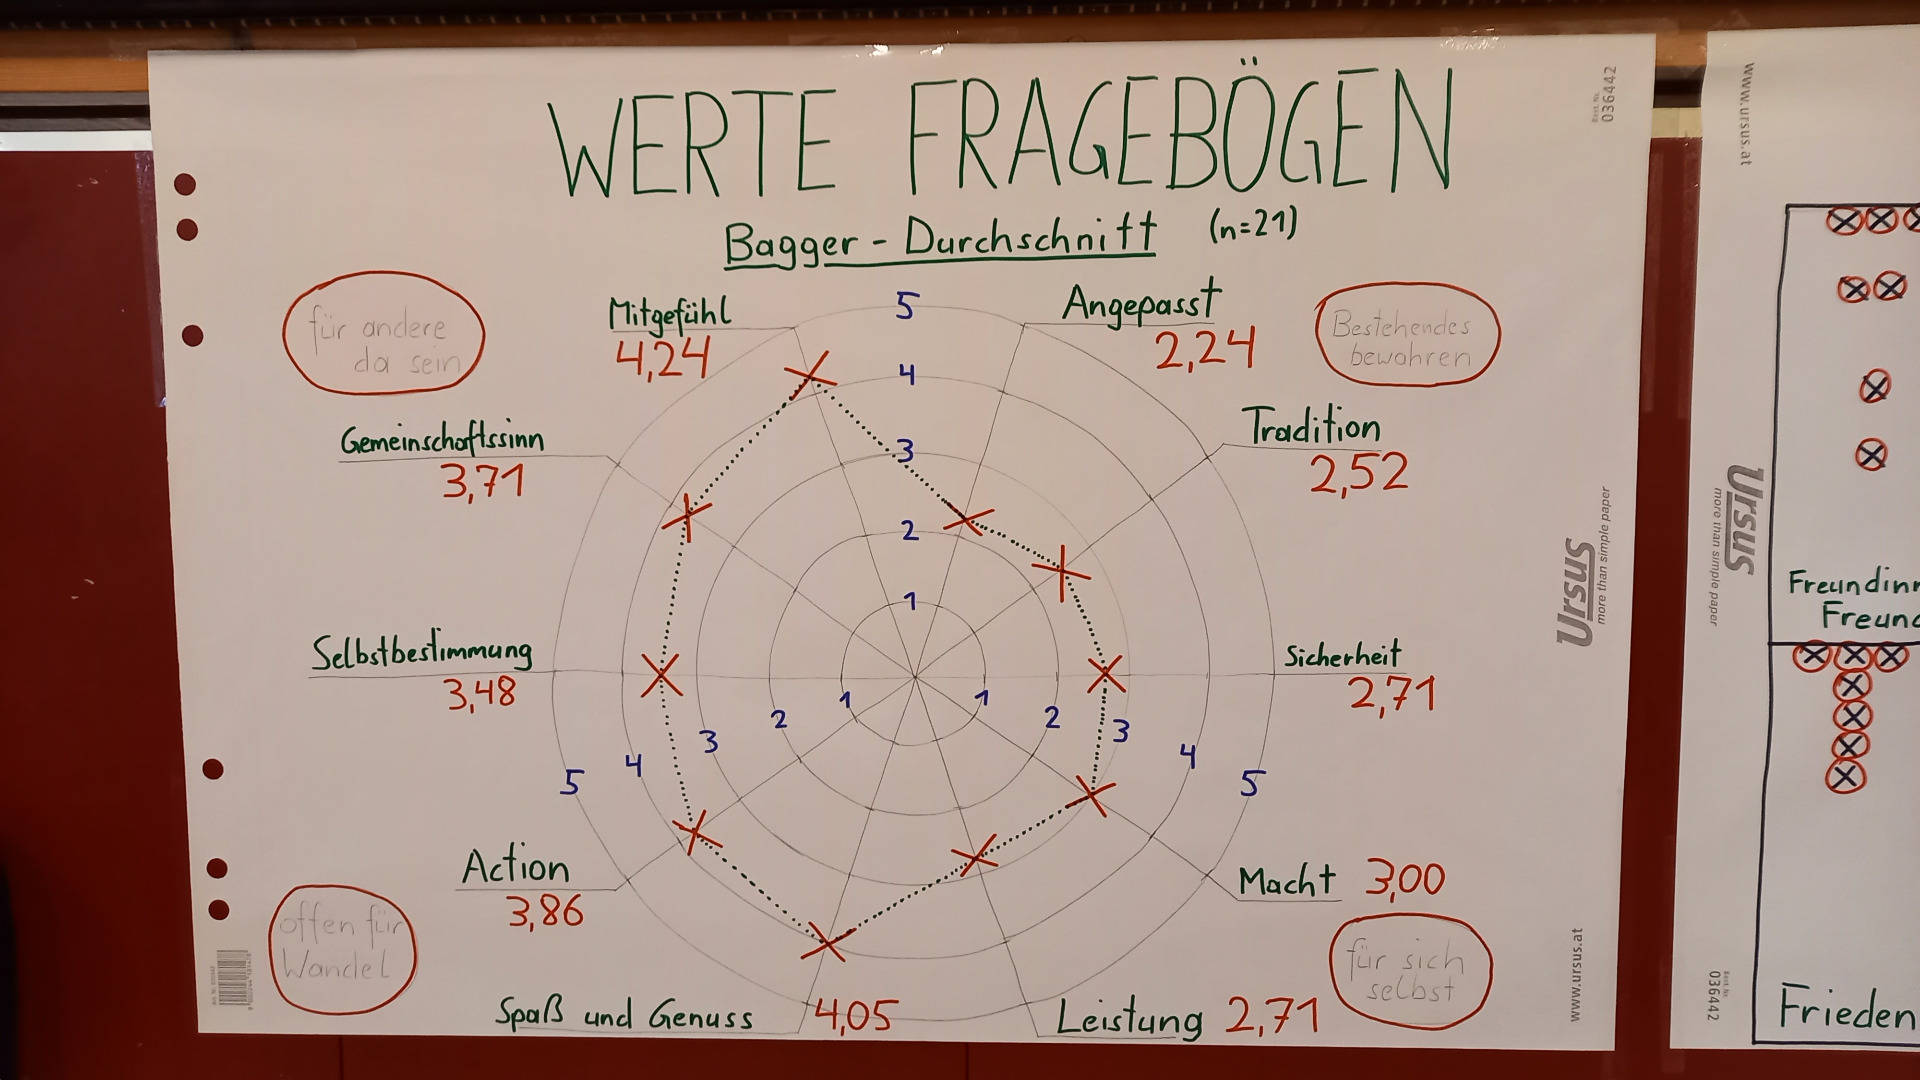 WERTE FRAGEBÖGEN
Bagger - Durchschnitt (n=21)
für andere
da sein
Mitgefühl
4,24
Angepasst
2,24
Bestehendes
bewahren
Gemeinschaftssinn
3,71
Tradition
2,52
Selbstbestimmung
3,48
Sicherheit
2,71
Action
3,86
Macht 3,00
offen für
Wandel
für sich
selbst
Spaß und Genuss 4,05
Leistung 2,71
5
4
3
2
1
1
2
3
4
5
1
2
3
4
5
036442
Ursus
more than simple paper
www.ursus.at
www.ursus.at
Ursus
more than simple paper
036442
Freundinn
Freund
Frieden